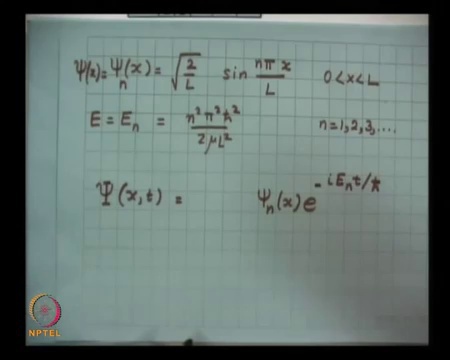 Ψ(x) = Ψn(x) = √(2/L) sin nπx/L 0 < x < L
E = En = n²π²ħ²/2μL² n = 1, 2, 3, ....
Ψ(x,t) = Ψn(x) e^(-iEnt/ħ)
NPTEL